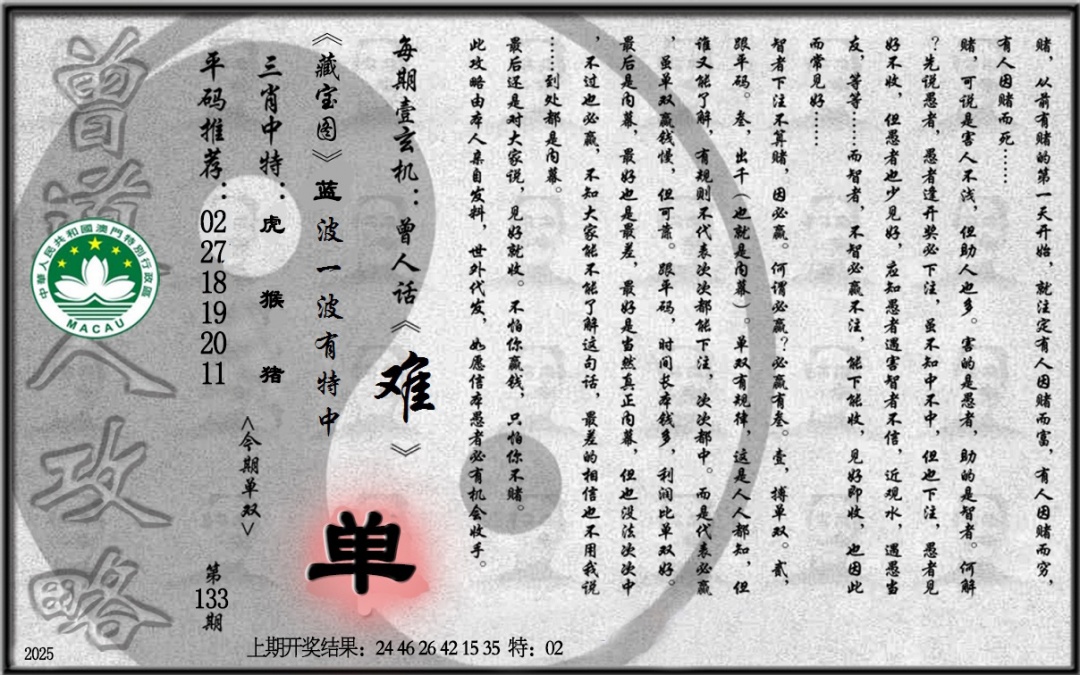 赌，从前有赌的第一天开始，就注定有人因赌而富，有人因赌而穷，
有人因赌而死……
赌，可说是害人不浅，但助人也多。害的是愚者，助的是智者。何解
？先说愚者，愚者逢开奖必下注，虽不知中不中，但也下注，愚者见
好不收，但愚者也少见好，应知愚者遇害智者不信，近观水，遇愚当
友，等等……而智者，不智必赢不注，能下能收，见好即收，也因此
而常见好……
智者下注不算赌，因必赢。何谓必赢？必赢有叁。壹，搏单双。贰，
跟平码。叁，出千（也就是内幕）。单双有规律，这是人人都知，但
谁又能了解，有规则不代表次次都能下注，次次都中。而是代表必赢
，虽单双赢钱慢，但可靠。跟平码，时间长本钱多，利润比单双好。
最后是内幕，最好也是最差，最好是当然真正内幕，但也没法次次中
，不过也必赢，不知大家能不能了解这句话，最差的相信也不用我说
……到处都是内幕。
最后还是对大家说，见好就收。不怕你赢钱，只怕你不赌。
此攻略由本人亲自发料，世外代发，如愿信本愚者必有机会收手。
每期壹玄机：曾人话《难》
《藏宝图》蓝波一波有特中
三肖中特：虎 猴 猪
<今期单双>
单
平码推荐：02 27 18 19 20 11
第133期
曾道人攻略
中華人民共和國澳門特別行政區
MACAU
2025
上期开奖结果：24 46 26 42 15 35 特：02